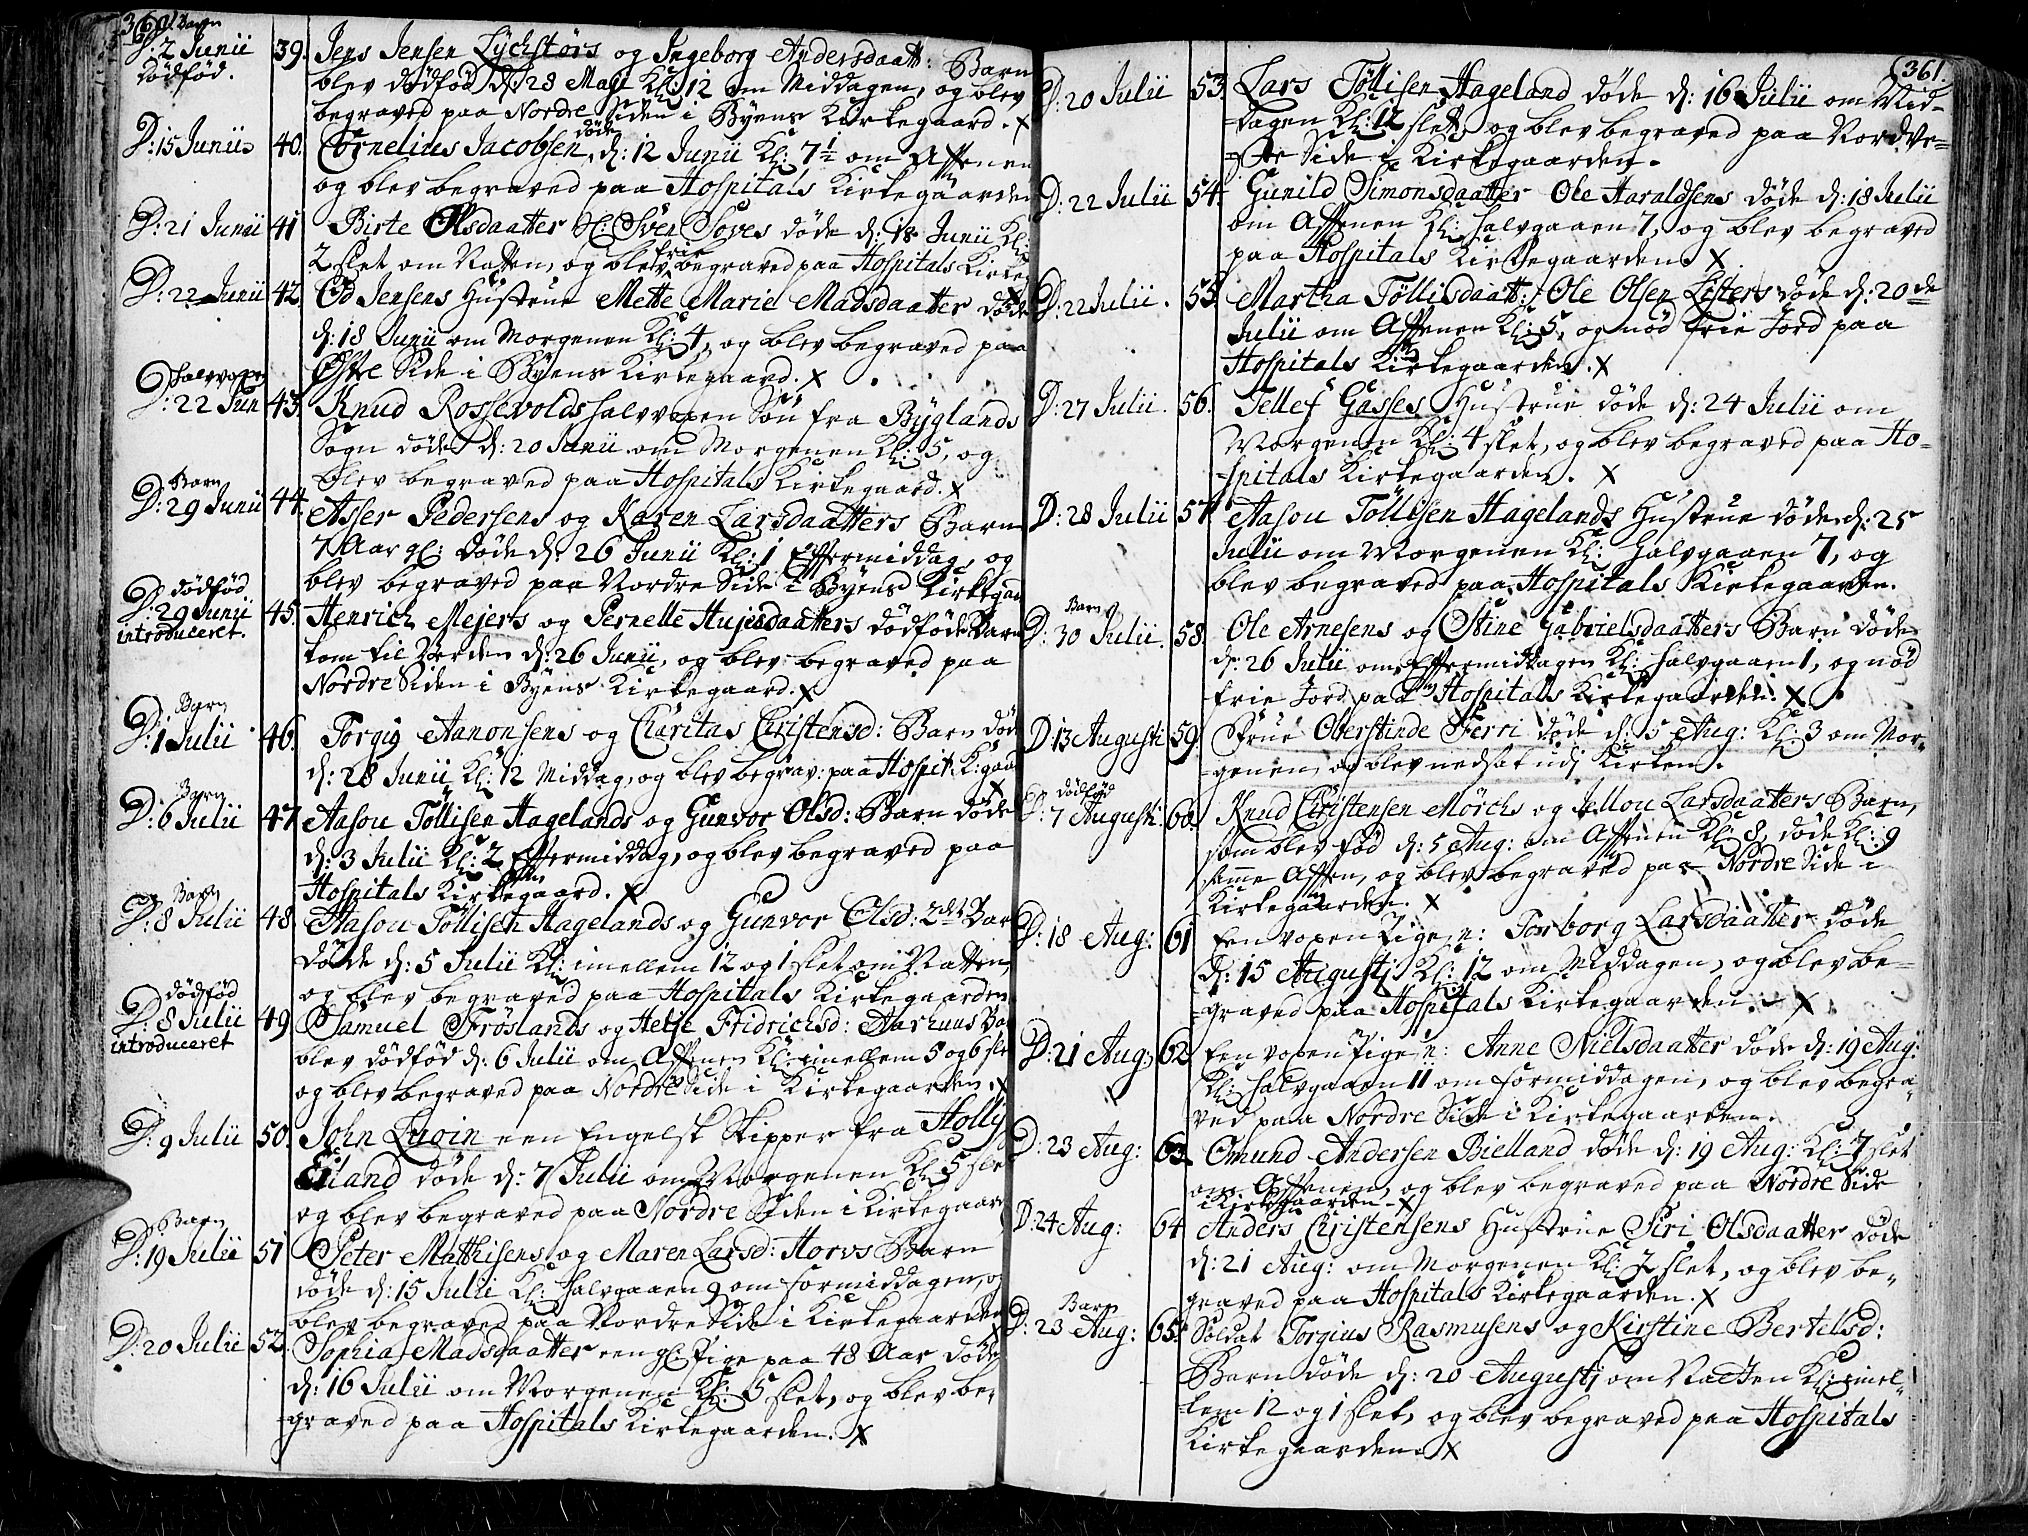 360.
Barn
D: 2 Junii 39. Jens Jensen Lÿchstørs og Ingeborg Andersdaatt: Barn
dödföd. blev dödföd d: 28 Maji Kl: 12 om Middagen, og blev
begraved paa Nordre Siden i Byens Kirkegaard. X
D: 15 Junii 40. Cornelius Jacobsen döde d: 12 Junii Kl: 7½ om Afftenen
og blev begraved paa Hospitals Kirkegaarden
D: 21 Junii 41 Birte Olsdaatter Sver Soves döde d: 18 Junii Kl:
2 slet om Natten, og blev frie begraved paa Hospitals Kirkeg
D: 22 Junii 42. Od Jensens Hustrue Mette Marie Madsdaatter döde
d: 18 Junii om Morgenen Kl: 4, og blev begraved paa
Østre Side i Byens Kirkegaard. X
Halvvoxen
D: 22 Jun 43. Knud Rossevolds halvvoxen Søn fra Byglands
Sogn döde d: 20 Junii om Morgenen Kl: 5, og
blev begraved paa Hospitals Kirkegaard. X
Barn
D: 29 Junii 44. Asser Pedersens og Karen Larsdaatters Barn
7 Aar gl: döde d: 26 Junii Kl: 1 Efftermiddag, og
blev begraved paa Nordre Side i Byens Kirkegaa
dödföd
D: 29 Junii 45. Henrich Mejers og Pernelle Hujusdaatters dödföde Barn
introduceret. kom til Verden d: 26 Junii, og blev begraved paa
Nordre Siden i Byens Kirkegaard. X
Barn
D: 1 Julii 46. Torgis Aanonsens og Charitas Christensd: Barn död
d: 28 Junii Kl: 12 Middag, og blev begrav: paa Hospit. K:gaa
Barn
D: 6 Julii 47 Aasou Töllisen Hagelands og Gunvor Olsd: Barn döde
d: 3 Julii Kl: 2 Efftermiddag, og blev begraved paa
Hospitals Kirkegaard. X
Barn
D: 8 Julii 48. Aasou Töllisen Hagelands og Gunvor Olsd: 2det Bar
döde d: 5 Julii Kl: imellem 12 og 1 slet om Natten,
og blev begraved paa Hospitals Kirkegaarden
dödföd
D: 8 Julii 49 Samuel Fröslands og Helje Fridrichsd: Aarhuus Ba
introduceret blev dödföd d: 6 Julii om Afftenen Kl: imellem 5 og 6 sle
og blev begraved paa Nordre Side i Kirkegaarden. X
D: 9 Julii 50. John Lugin een Engelsk Skipper fra Holly
Eiland döde d: 7 Julii om Morgenen Kl: 5 slet
og blev begraved paa Nordre Siden i Kirkegaard
Barn
D: 19 Julii 51 Peter Mathisens og Maren Larsd: Horvs Barn
döde d: 15 Julii Kl: halvgaaen 9 om formiddagen, o
blev begraved paa Nordre Side i Kirkegaarden
D: 20 Julii 52. Sophia Madsdaatter een gl: Pige paa 48 Aar döde
d: 16 Julii om Morgenen Kl: 5 slet, og blev be-
graved paa Hospitals Kirkegaarden. X
361.
D: 20 Julii 53. Lars Töllisen Hageland döde d: 16 Julii om Mid-
dagen Kl: 12 slet, og blev begraved paa Nordve-
stre Side i Kirkegaarden.
D: 22 Julii 54. Gunild Simonsdaatter Ole Haraldsens döde d: 18 Julii
om Afftenen Kl: halvgaaen 7, og blev begraved
paa Hospitals Kirkegaarden X
D: 22 Julii. 55 Martha Töllisdaatt: Ole Olsen Listers döde d: 20de
Julii om Afftenen Kl: 5, og nöd frie Jord paa
Hospitals Kirkegaarden. X
D: 27 Julii. 56. Tellef Gasses Hustrue döde d: 24 Julii om
Morgenen Kl: 4 slet, og blev begraved paa Ho-
spitals Kirkegaarden. X
D: 28 Julii 57 Aasou Töllisen Hagelands Hustrue döde d: 25
Julii om Morgenen Kl: halvgaaen 7, og
blev begraved paa Hospitals Kirkegaarden.
Barn
D: 30 Julii. 58. Ole Arnesens og Stine Gabrielsdaatters Barn döde
d: 26 Julii om Efftermiddagen Kl: halvgaaen 1, og nöd
frie Jord paa Hospitals Kirkegaarden. X
D: 13 Augusti 59. Frue Oberstinde Ferri döde d: 5 Aug: Kl: 3 om Mor-
genen, og blev nedsat udj Kirken.
dödföd
D: 7 Augusti 60. Knud Christensen Mörchs og Jellou Larsdaatters Barn,
som blev föd d: 5 Aug: om Afftenen Kl: 8, döde Kl: 9
samme Afften, og blev begraved paa Nordre Side i
Kirkegaarden. X
D: 18 Aug: 61 Een voxen Pige, n: Torborg Larsdaatter döde
d: 15 Augustj Kl: 12 om Middagen, og blev be-
graved paa Hospitals Kirkegaarden. X
D: 21 Aug: 62 Een voxen Pige n: Anne Nielsdaatter döde d: 19 Aug:
Kl: halvgaaen 11 om formiddagen, og blev begra-
ved paa Nordre Side i Kirkegaarden.
D: 23 Aug: 63. Omund Andersen Bielland döde d: 19 Aug: Kl: 7 slet
om Afftenen, og blev begraved paa Nordre Side
i Kirkegaarden. X
D: 24 Aug: 64 Anders Christensens Hustrue Siri Olsdaatter döde
d: 21 Aug: om Morgenen Kl: 7 slet, og blev be-
graved paa Hospitals Kirkegaarden. X
Barn
D: 23 Aug: 65. Soldat Torgius Rasmusens og Kirstine Bertelsd:
Barn döde d: 20 Augustj om Natten Kl: imel-
lem 12 og 1 slet, og blev begraved paa Hospitals
Kirkegaarden. X